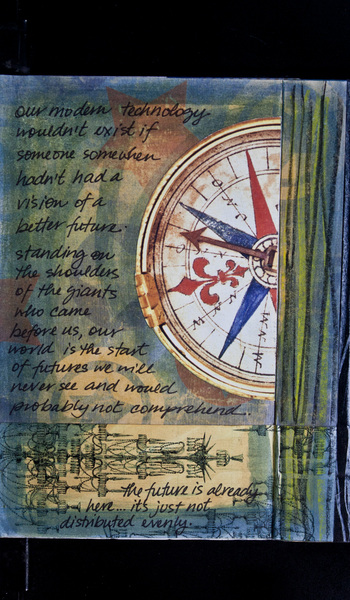 our modern technology
wouldn't exist if
someone somewhen
hadn't had a
vision of a
better future.
standing on
the shoulders
of the giants
who came
before us, our
world is the start
of futures we will
never see and would
probably not comprehend.
the future is already
here... it's just not
distributed evenly.